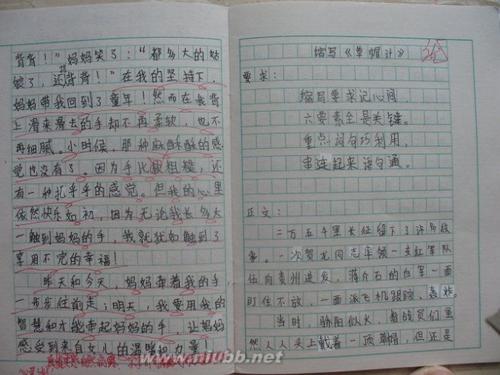 背背！”妈妈笑了：“都多大的姑
娘了，还背背！”在我的坚持下，
妈妈带我回到了童年！然而在我背
上滑来滑去的手却不再柔软，也不
再细腻。小时候，那种麻酥酥的感
觉也没有了。因为手比较粗糙，还
有一种扎乎乎的感觉。但我的心里
依然快乐如初，因为无论我长多大
一触到妈妈的手，我就犹如触到了
享用不完的幸福！
昨天和今天，妈妈牵着我的手
一步步往前走；明天，我要用我的
智慧和才能牵起妈妈的手，让妈妈
感受到来自女儿的温暖和力量！
缩写《草帽计》
要求：
缩写要求记心间，
六要素全是关键。
重点词句巧利用，
串连起来语句通。
正文：
二万五千里长征留下了许多故
事。一次贺龙同志率领一支红军队
伍向贵州进发，蒋介石的白军一面
盯住不放，一面派飞机跟踪、轰炸。
当时，骄阳似火，看战士们里
然人人头上戴着一顶草帽，但还是
www.niubb.net